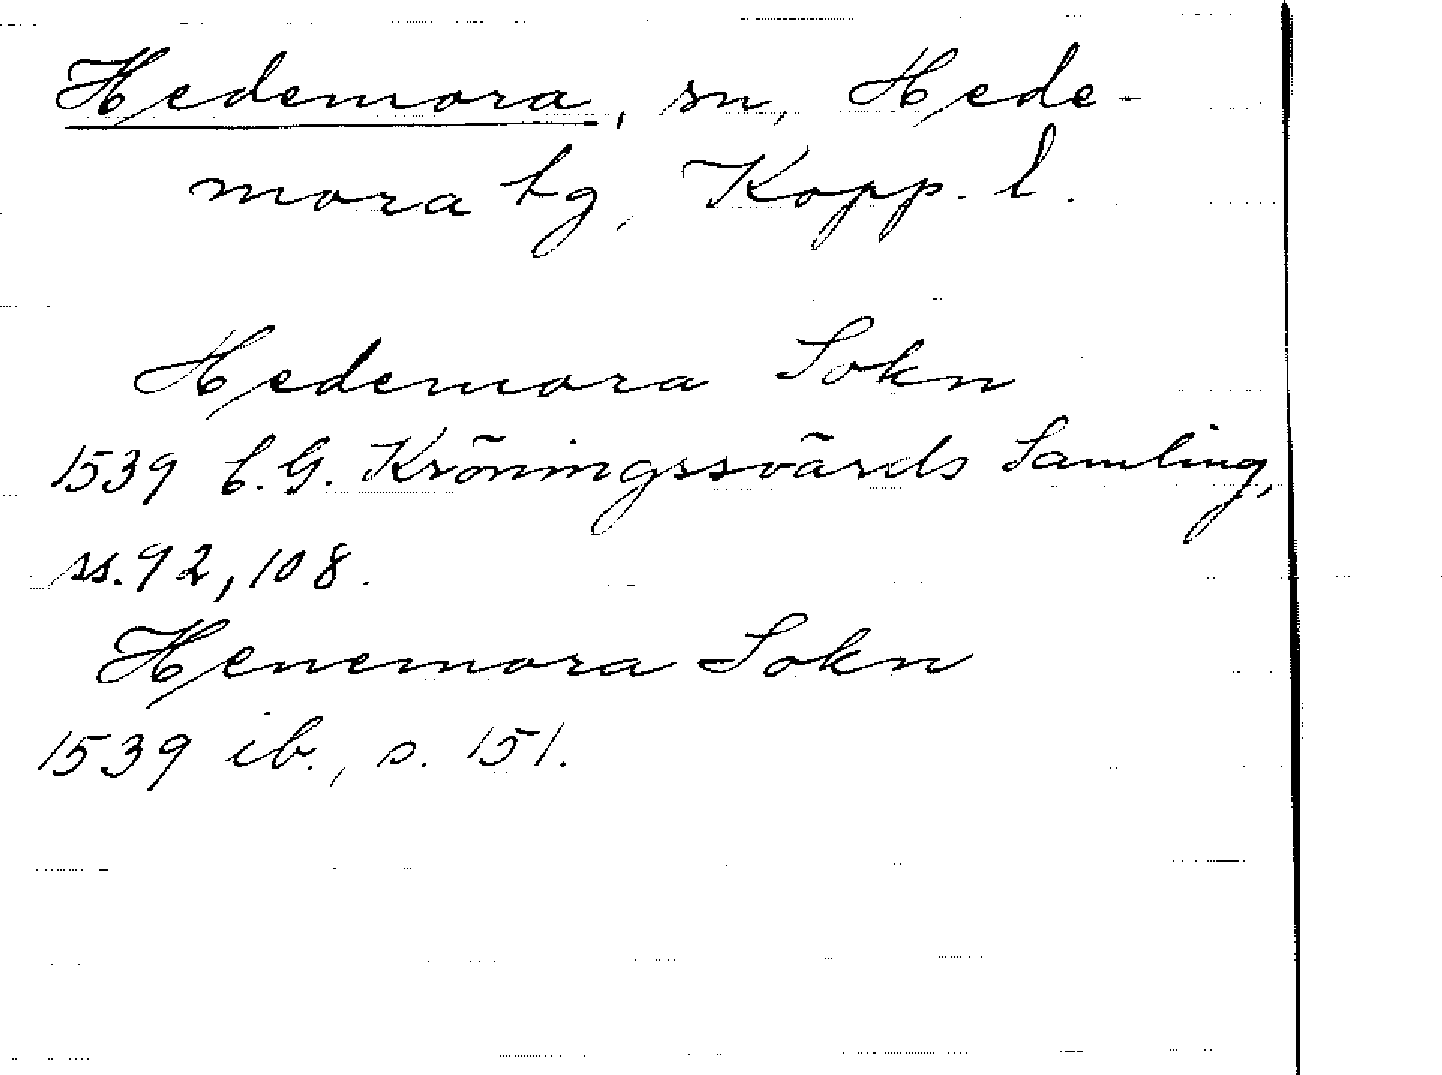 Hedemora, sn, Hede-
mora tg, Kopp. l.
Hedemora Sokn
1539 C. G. Kröningssvärds Samling,
ss. 92, 108.
Henemora Sokn
1539 ib., s. 151.